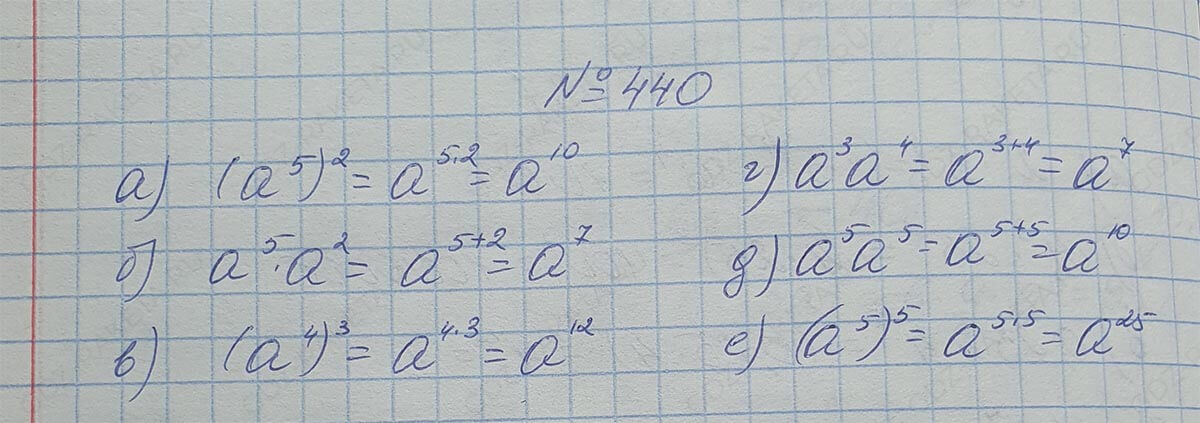 № 440
а) (a⁵)² = a⁵·² = a¹⁰
б) a⁵·a² = a⁵⁺² = a⁷
в) (a⁴)³ = a⁴·³ = a¹²
г) a³a⁴ = a³⁺⁴ = a⁷
д) a⁵a⁵ = a⁵⁺⁵ = a¹⁰
е) (a⁵)⁵ = a⁵·⁵ = a²⁵